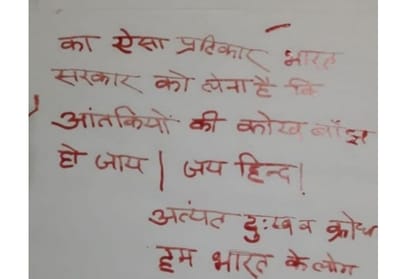 का ऐसा प्रतिकार भारत
सरकार को लेना है कि
आंतकियों की कोख बाँझ
हो जाय | जय हिन्द!
अत्यंत दुःख व क्रोध
हम भारत के लोग